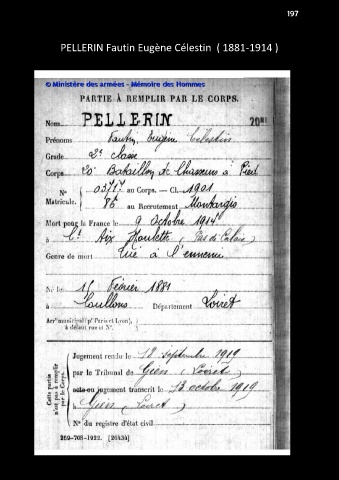 197
PELLERIN Fautin Eugène Célestin ( 1881-1914 )
© Ministère des armées - Mémoire des Hommes
PARTIE À REMPLIR PAR LE CORPS.
Nom PELLERIN 20
Prénoms Fautin, Eugène Célestin
Grade 2e classe
Corps 20e Bataillon de Chasseurs à Pied
N° Matricule. 03717 au Corps. — Cl. 1901
86 au Recrutement Montargis
Mort pour la France le 9 Octobre 1914
à Aix Noulette (Pas de Calais)
Genre de mort Tué à l'ennemi
Né le 15 Février 1881
à Coullons Département Loiret
Arrt municipal (pr Paris et Lyon),
à défaut rue et N°.
Cette partie n'est pas à remplir par le Corps.
Jugement rendu le 12 septembre 1919
par le Tribunal de Gien (Loiret)
acte ou jugement transcrit le 13 octobre 1919
à Gien (Loiret)
N° du registre d'état civil
269-708-1922. [26434]